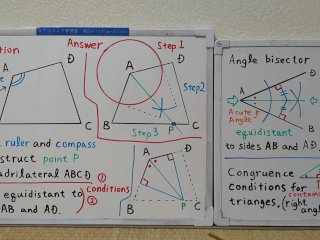 tion
Answer
Step 1
A
D
Step2
B
C
P
Step3
A
D
C
ruler and compass
struct point P
adrilateral ABCD
equidistant to
AB and AD.
①
conditions
②
A
D
B
P
C
Angle bisector
A
D
B
Acute
Angle
equidistant
to sides AB and AD
Congruence
conditions for
triangles. (right